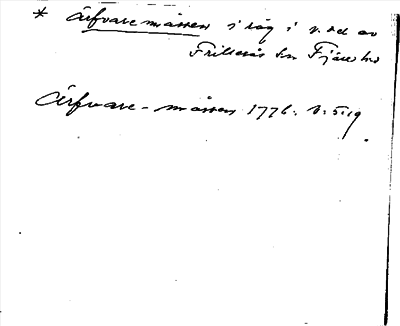 * Ärfvaremåssen i väg i n. del av
Frillesås sn Fjäre hd
Ärfvare-måssen 1776. V: 5:19